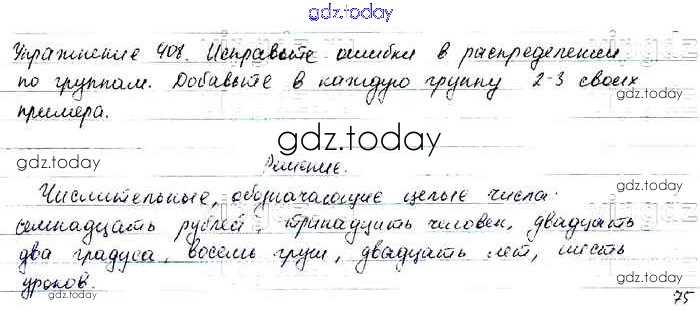 gdz.today
Упражнение 408. Исправьте ошибки в распределении
по группам. Добавьте в каждую группу 2-3 своих
примера.
gdz.today
gdz.today
gdz.today
Решение.
Числительные, обозначающие целые числа:
семнадцать рублей, тринадцать человек, двадцать
два градуса, восемь груш, двадцать лет, шесть
уроков.
gdz.today
gdz.today
75